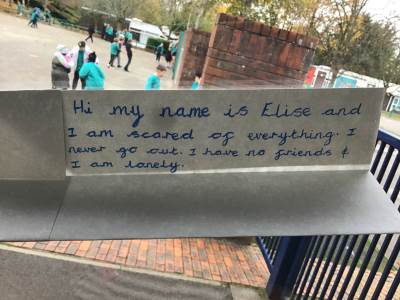 Hi my name is Elise and
I am scared of everything. I
never go out. I have no friends &
I am lonely.